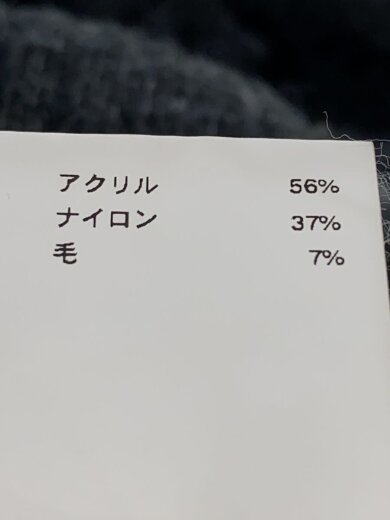 アクリル 56%
ナイロン 37%
毛 7%